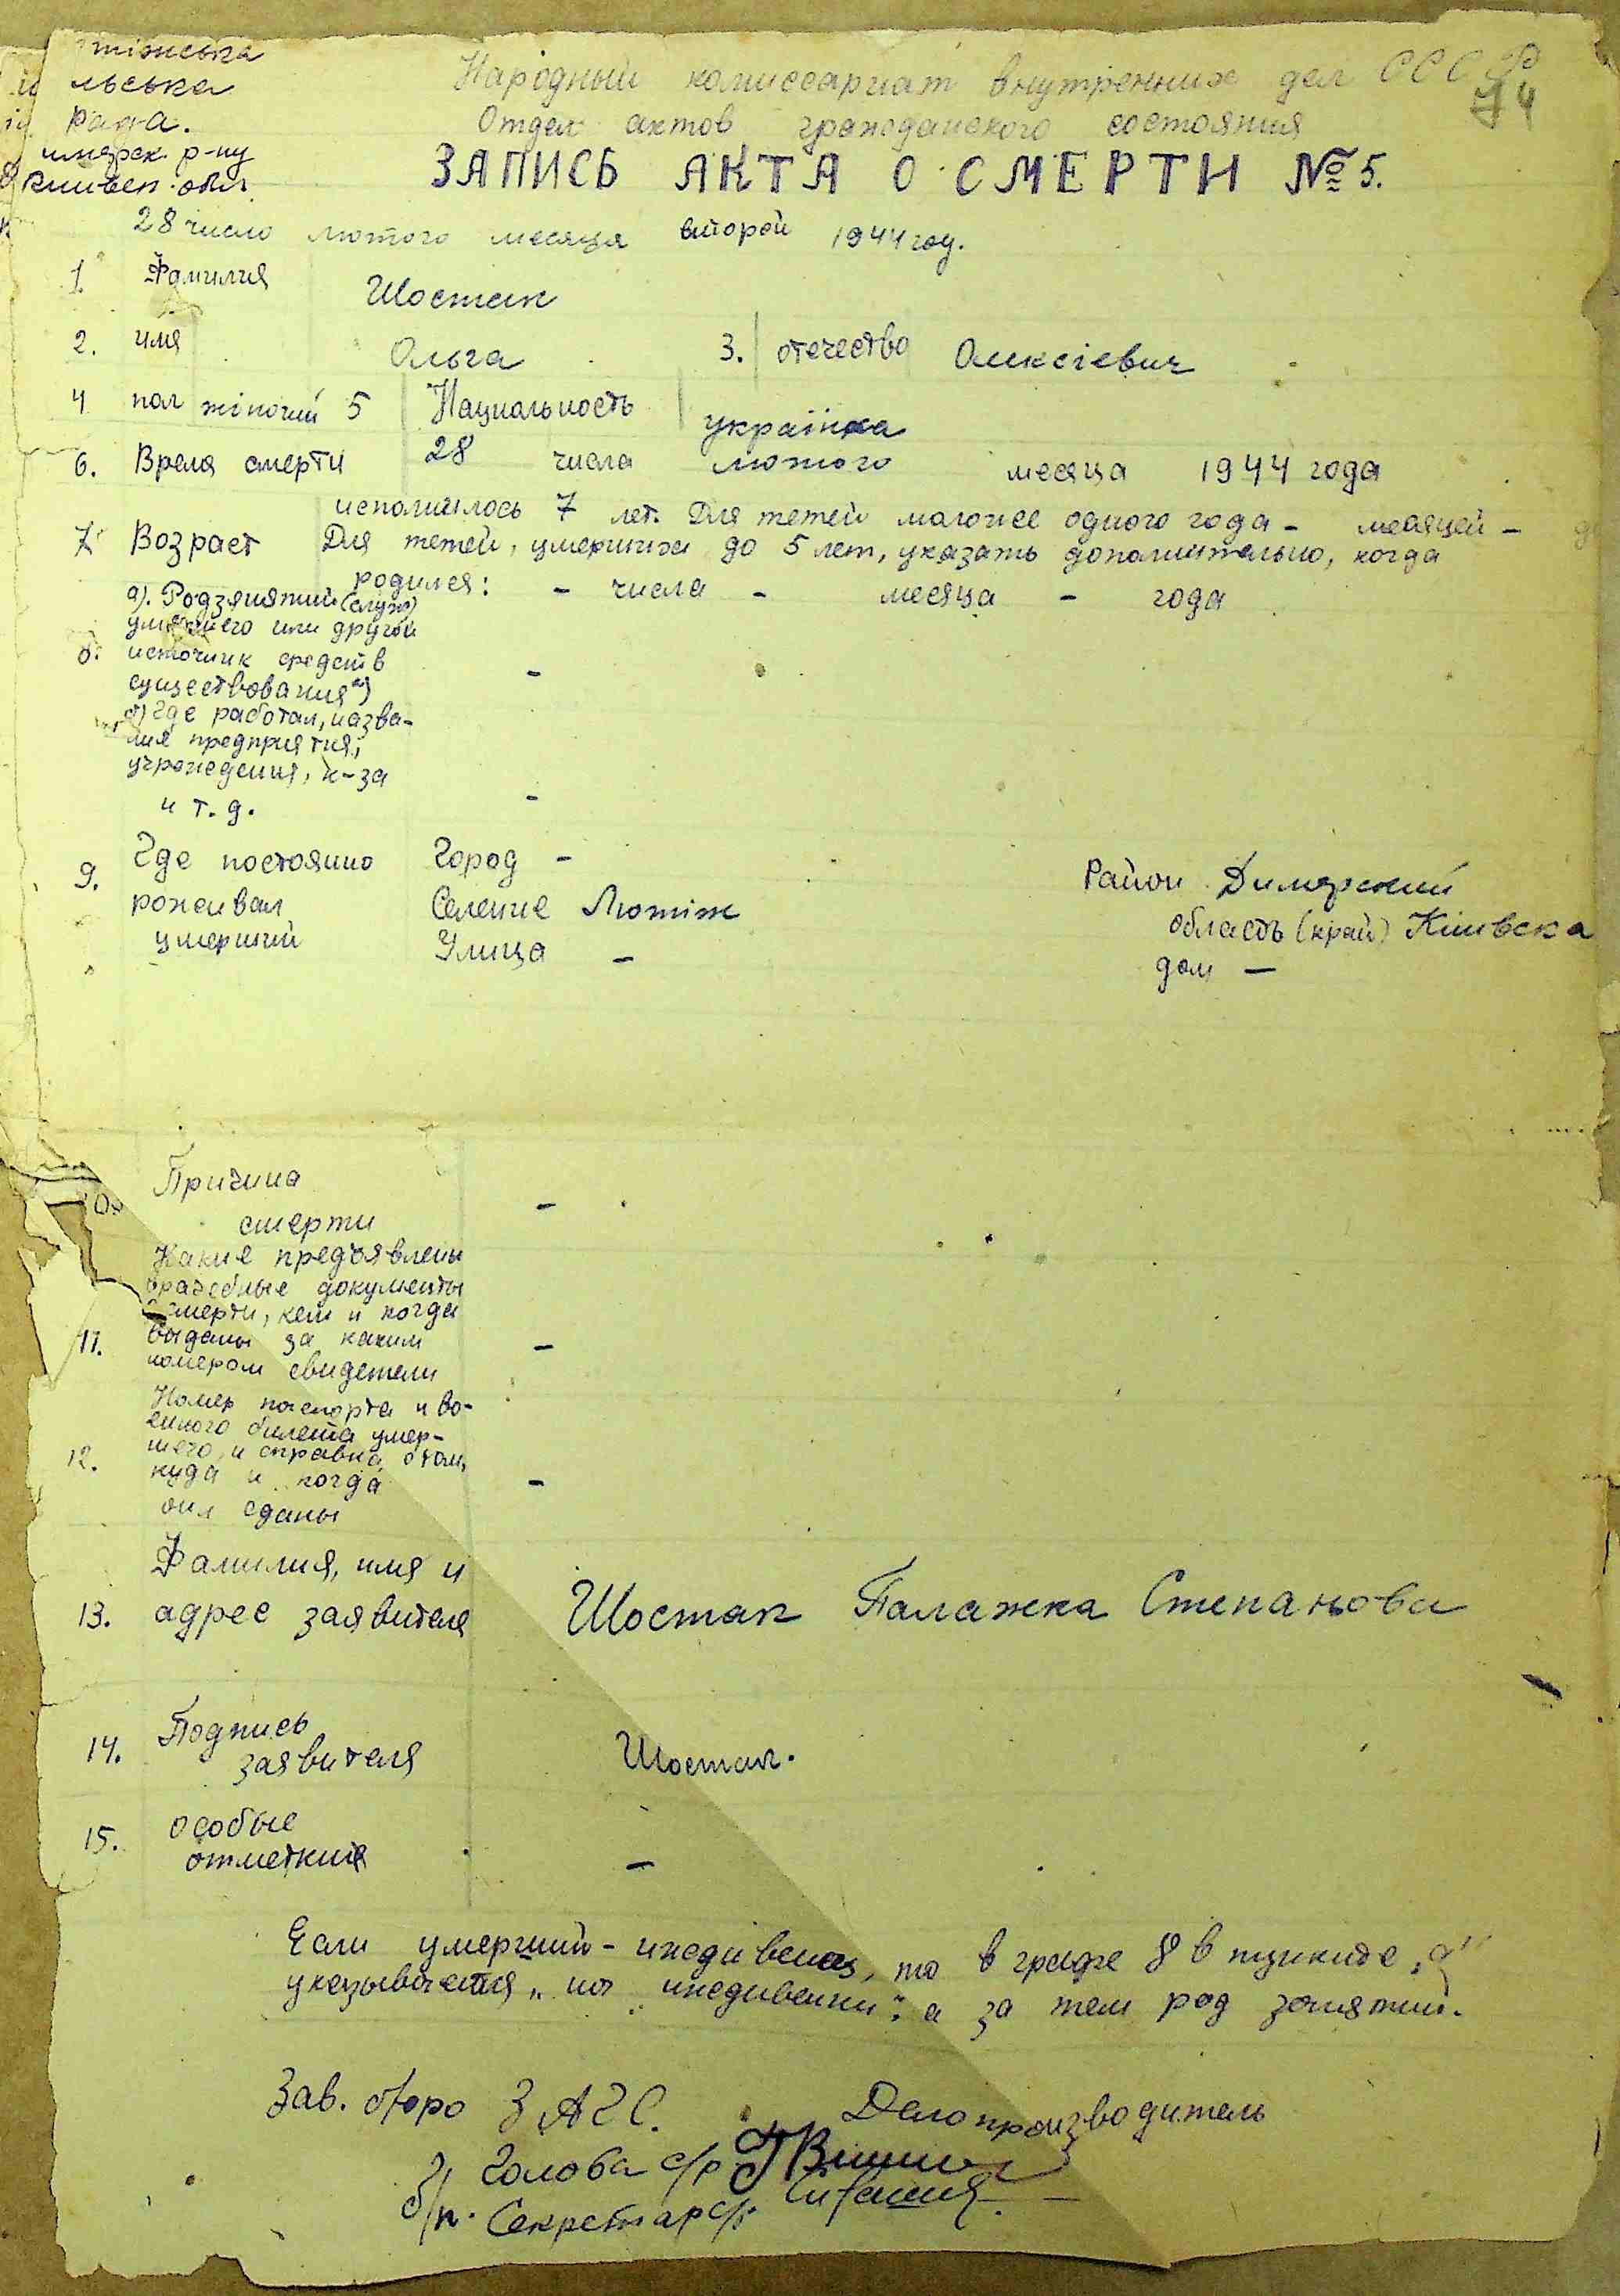 тіжська
льська
рада.
имерск. р-ну
Київск. обл.
Народный комиссариат внутренних дел СССР
Отдел актов гражданского состояния
ЗАПИСЬ АКТА О СМЕРТИ № 5.
28 число лютого месяца второй 1944 год.
1. Фамилия Шостак
2. имя Ольга 3. отечество Олексієвич
4 пол жіночий 5 Нациальность українка
6. Время смерти 28 числа лютого месяца 1944 года
исполнилось 7 лет. Для тетей моложее одного года - месяцей -
7 Возраст Для тетей, умерших до 5 лет, указать дополнительно, когда
родился: - числа - месяца - года
а). Родзянятий (служ)
умершего или другой
8. источник средств
существования*) -
б) Где работал, назва-
ния предприятия,
учреждения, к-за
и т. д. -
9. Где постоянно Город - Район Димерский
роживал Селение Лютіж область (край) Київска
умерший Улица - дом -
10. Причина
смерти -
Какие предъявлены
врачебные документы
смерти, кем и когда
11. выданы за каким -
номером свидетели
Номер паспорта и во-
енного билета умер-
12. шего, и справка о том,
куда и когда -
они сданы
Фамилия, имя и
13. адрес заявителя Шостак Палажка Степановa
14. Подпись
заявителя Шостак.
15. особые
отметкия -
Если умерший - иждивенец, то в графе 8 в пункте „а"
указывается „ на иждивении", а за тем род занятий.
Зав. бюро ЗАГС. Делопроизводитель
Голова с/р
б/п. Секретар с/р